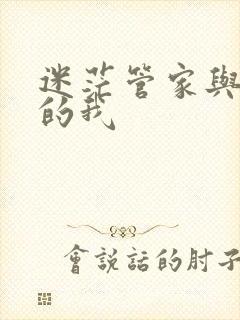 迷茫管家與
的我
會說話的肘子